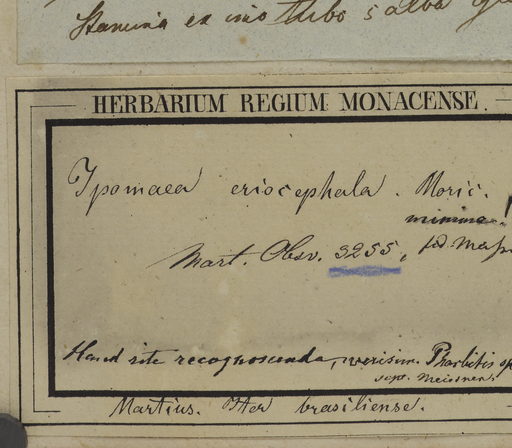 Stamina ex imo tubo 5 alba
HERBARIUM REGIUM MONACENSE.
Ipomaea eriocephala. Moric.
minime!
Mart. Obsv. 3255,
Haud rite recognoscenda, verisim. Pharbitis
sept. Meissner.
Martius. Iter brasiliense.